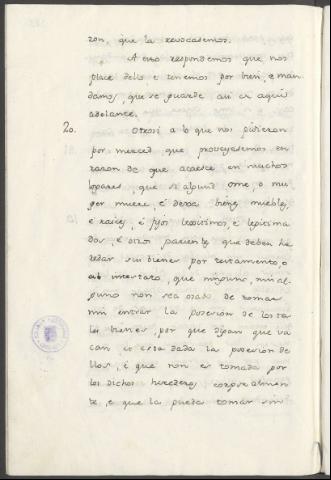 zon, que la revocasemos.
A esto respondemos que nos
place dello e tenemos por bien, e man
damos, que se guarde asi de aqui
adelante.
20. Otrosi a lo que nos pidieron
por merced que proveyesemos en
razon de que acaesce en muchos
logares, que si algund ome, o mu
ger muere, e dexa bienes muebles,
e raices, e fijos legitimos, e legitima
dos, e otros parientes que deben he
redar sus bienes por testamento, o
ab intestato, que ninguno, nin al
guno non sea osado de tomar
nin entrar la posesion de los ta
les bienes, por que digan que va
can o esta dada la posesion de
llos, e que non es tomada por
los dichos herederos corporalmen
te, e que la pueda tomar sin